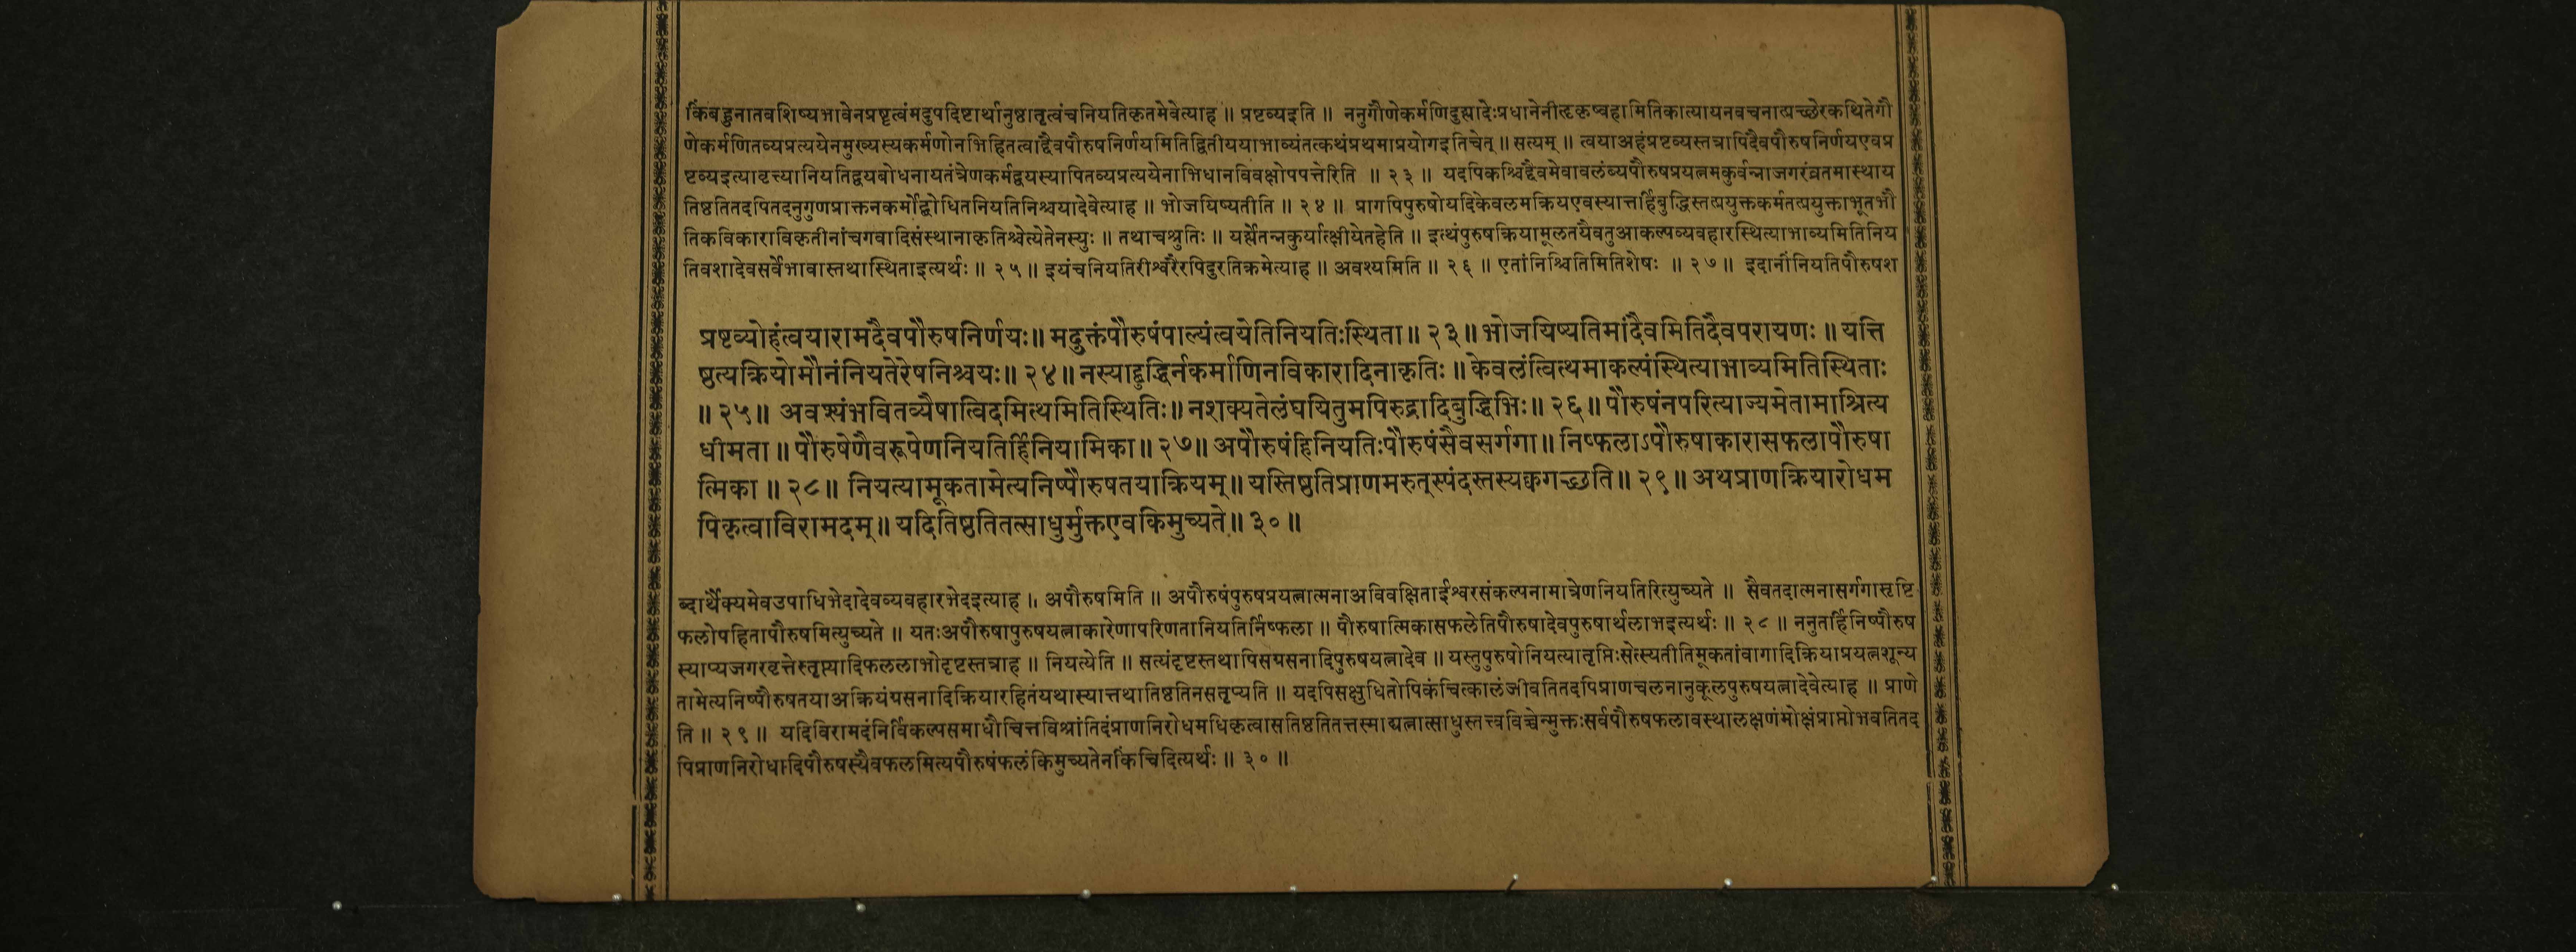 किंबहुनातवशिष्यभावेनप्रष्टृत्वंमदुपदिष्टार्थानुष्ठातृत्वंचनियतिकृतमेवेत्याह ॥ प्रष्टव्यइति ॥ ननुगौणेकर्मणिदुह्यादेःप्रधानेनीहृकृष्वहामितिकात्यायनवचनात्प्रच्छेरकथितेगौ
णेकर्मणितव्यप्रत्ययेनमुख्यस्यकर्मणोनभिहितत्वाद्दैवपौरुषनिर्णयमितिद्वितीययाभाव्यंतत्कथंप्रथमाप्रयोगइतिचेत् ॥ सत्यम् ॥ त्वयाअहंप्रष्टव्यस्तत्रापिदैवपौरुषनिर्णयएवप्र
ष्टव्यइत्यावृत्त्यानियतिद्वयबोधनायतंत्रेणकर्मद्वयस्यापितव्यप्रत्ययेनाभिधानविवक्षोपपत्तेरिति ॥ २३ ॥ यदपिकश्चिद्दैवमेवावलंब्यपौरुषप्रयत्नमकुर्वन्नाजगरंव्रतमास्थाय
तिष्ठतितदपितदनुगुणप्राक्तनकर्मोद्बोधितनियतिनिश्चयादेवेत्याह ॥ भोजयिष्यतीति ॥ २४ ॥ प्रागपिपुरुषोयदिकेवलमक्रियएवस्यात्तर्हिबुद्धिस्तत्प्रयुक्तकर्मतत्प्रयुक्ताभूतभौ
तिकविकाराविकृतीनांचगवादिसंस्थानाकृतिश्चेत्येतेनस्युः ॥ तथाचश्रुतिः ॥ यर्ह्येतन्नकुर्यात्क्षीयेतहेति ॥ इत्थंपुरुषक्रियामूलतयैवतुआकल्पव्यवहारस्थित्याभाव्यमितिनिय
तिवशादेवसर्वेभावास्तथास्थिताइत्यर्थः ॥ २५ ॥ इयंचनियतिरीश्वरैरपिदुरतिक्रमेत्याह ॥ अवश्यमिति ॥ २६ ॥ एतांनिश्चितिमितिशेषः ॥ २७ ॥ इदानींनियतिपौरुषश
प्रष्टव्योहंत्वयारामदैवपौरुषनिर्णयः॥ मदुक्तंपौरुषंपाल्यंत्वयेतिनियतिःस्थिता ॥ २३ ॥ भोजयिष्यतिमांदैवमितिदैवपरायणः ॥ यत्ति
ष्ठत्यक्रियोमौनंनियतेरेषनिश्चयः॥ २४ ॥ नस्याद्बुद्धिर्नकर्माणिनविकारादिनाकृतिः ॥ केवलंत्वित्थमाकल्पंस्थित्याभाव्यमितिस्थिताः
॥ २५ ॥ अवश्यंभवितव्यैषात्विदमित्थमितिस्थितिः॥ नशक्यतेलंघयितुमपिरुद्रादिबुद्धिभिः॥ २६ ॥ पौरुषंनपरित्याज्यमेतामाश्रित्य
धीमता ॥ पौरुषेणैवरूपेणनियतिर्हिनियामिका ॥ २७॥ अपौरुषंहिनियतिःपौरुषंसैवसर्गगा ॥ निष्फलाऽपौरुषाकारासफलापौरुषा
त्मिका ॥ २८ ॥ नियत्यामूकतामेत्यनिष्पौरुषतयाक्रियम् ॥ यस्तिष्ठतिप्राणमरुत्स्पंदस्तस्यक्वगच्छति ॥ २९ ॥ अथप्राणक्रियारोधम
पिकृत्वाविरामदम् ॥ यदितिष्ठतितत्साधुर्मुक्तएवकिमुच्यते ॥ ३० ॥
ब्दार्थैक्यमेवउपाधिभेदादेवव्यवहारभेदइत्याह ॥ अपौरुषमिति ॥ अपौरुषंपुरुषप्रयत्नात्मनाअविवक्षिताईश्वरसंकल्पनामात्रेणनियतिरित्युच्यते ॥ सैवतदात्मनासर्गगासृष्टि
फलोपहितापौरुषमित्युच्यते ॥ यतःअपौरुषापुरुषयत्नाकारेणापरिणतानियतिर्निष्फला ॥ पौरुषात्मिकासफलेतिपौरुषादेवपुरुषार्थलाभइत्यर्थः ॥ २८ ॥ ननुतर्हिनिष्पौरुष
स्याप्यजगरवृत्तेस्तृप्त्यादिफललाभोदृष्टस्तत्राह ॥ नियत्येति ॥ सत्यंदृष्टस्तथापिसग्रसनादिपुरुषयत्नादेव ॥ यस्तुपुरुषोनियत्यातृप्तिःसेत्स्यतीतिमूकतांवागादिक्रियाप्रयत्नशून्य
तामेत्यनिष्पौरुषतयाअक्रियंग्रसनादिक्रियारहितंयथास्यात्तथातिष्ठतिनसतृप्यति ॥ यदपिसक्षुधितोपिकंचित्कालंजीवतितदपिप्राणचलनानुकूलपुरुषयत्नादेवेत्याह ॥ प्राणे
ति ॥ २९ ॥ यदिविरामदंनिर्विकल्पसमाधौचित्तविश्रांतिदंप्राणनिरोधमधिकृत्वासतिष्ठतितत्तस्माद्यत्नात्साधुस्तत्त्वविच्चेन्मुक्तःसर्वपौरुषफलावस्थालक्षणंमोक्षंप्राप्तोभवतितद
पिप्राणनिरोधादिपौरुषस्यैवफलमित्यपौरुषंफलंकिमुच्यतेनकिंचिदित्यर्थः ॥ ३० ॥